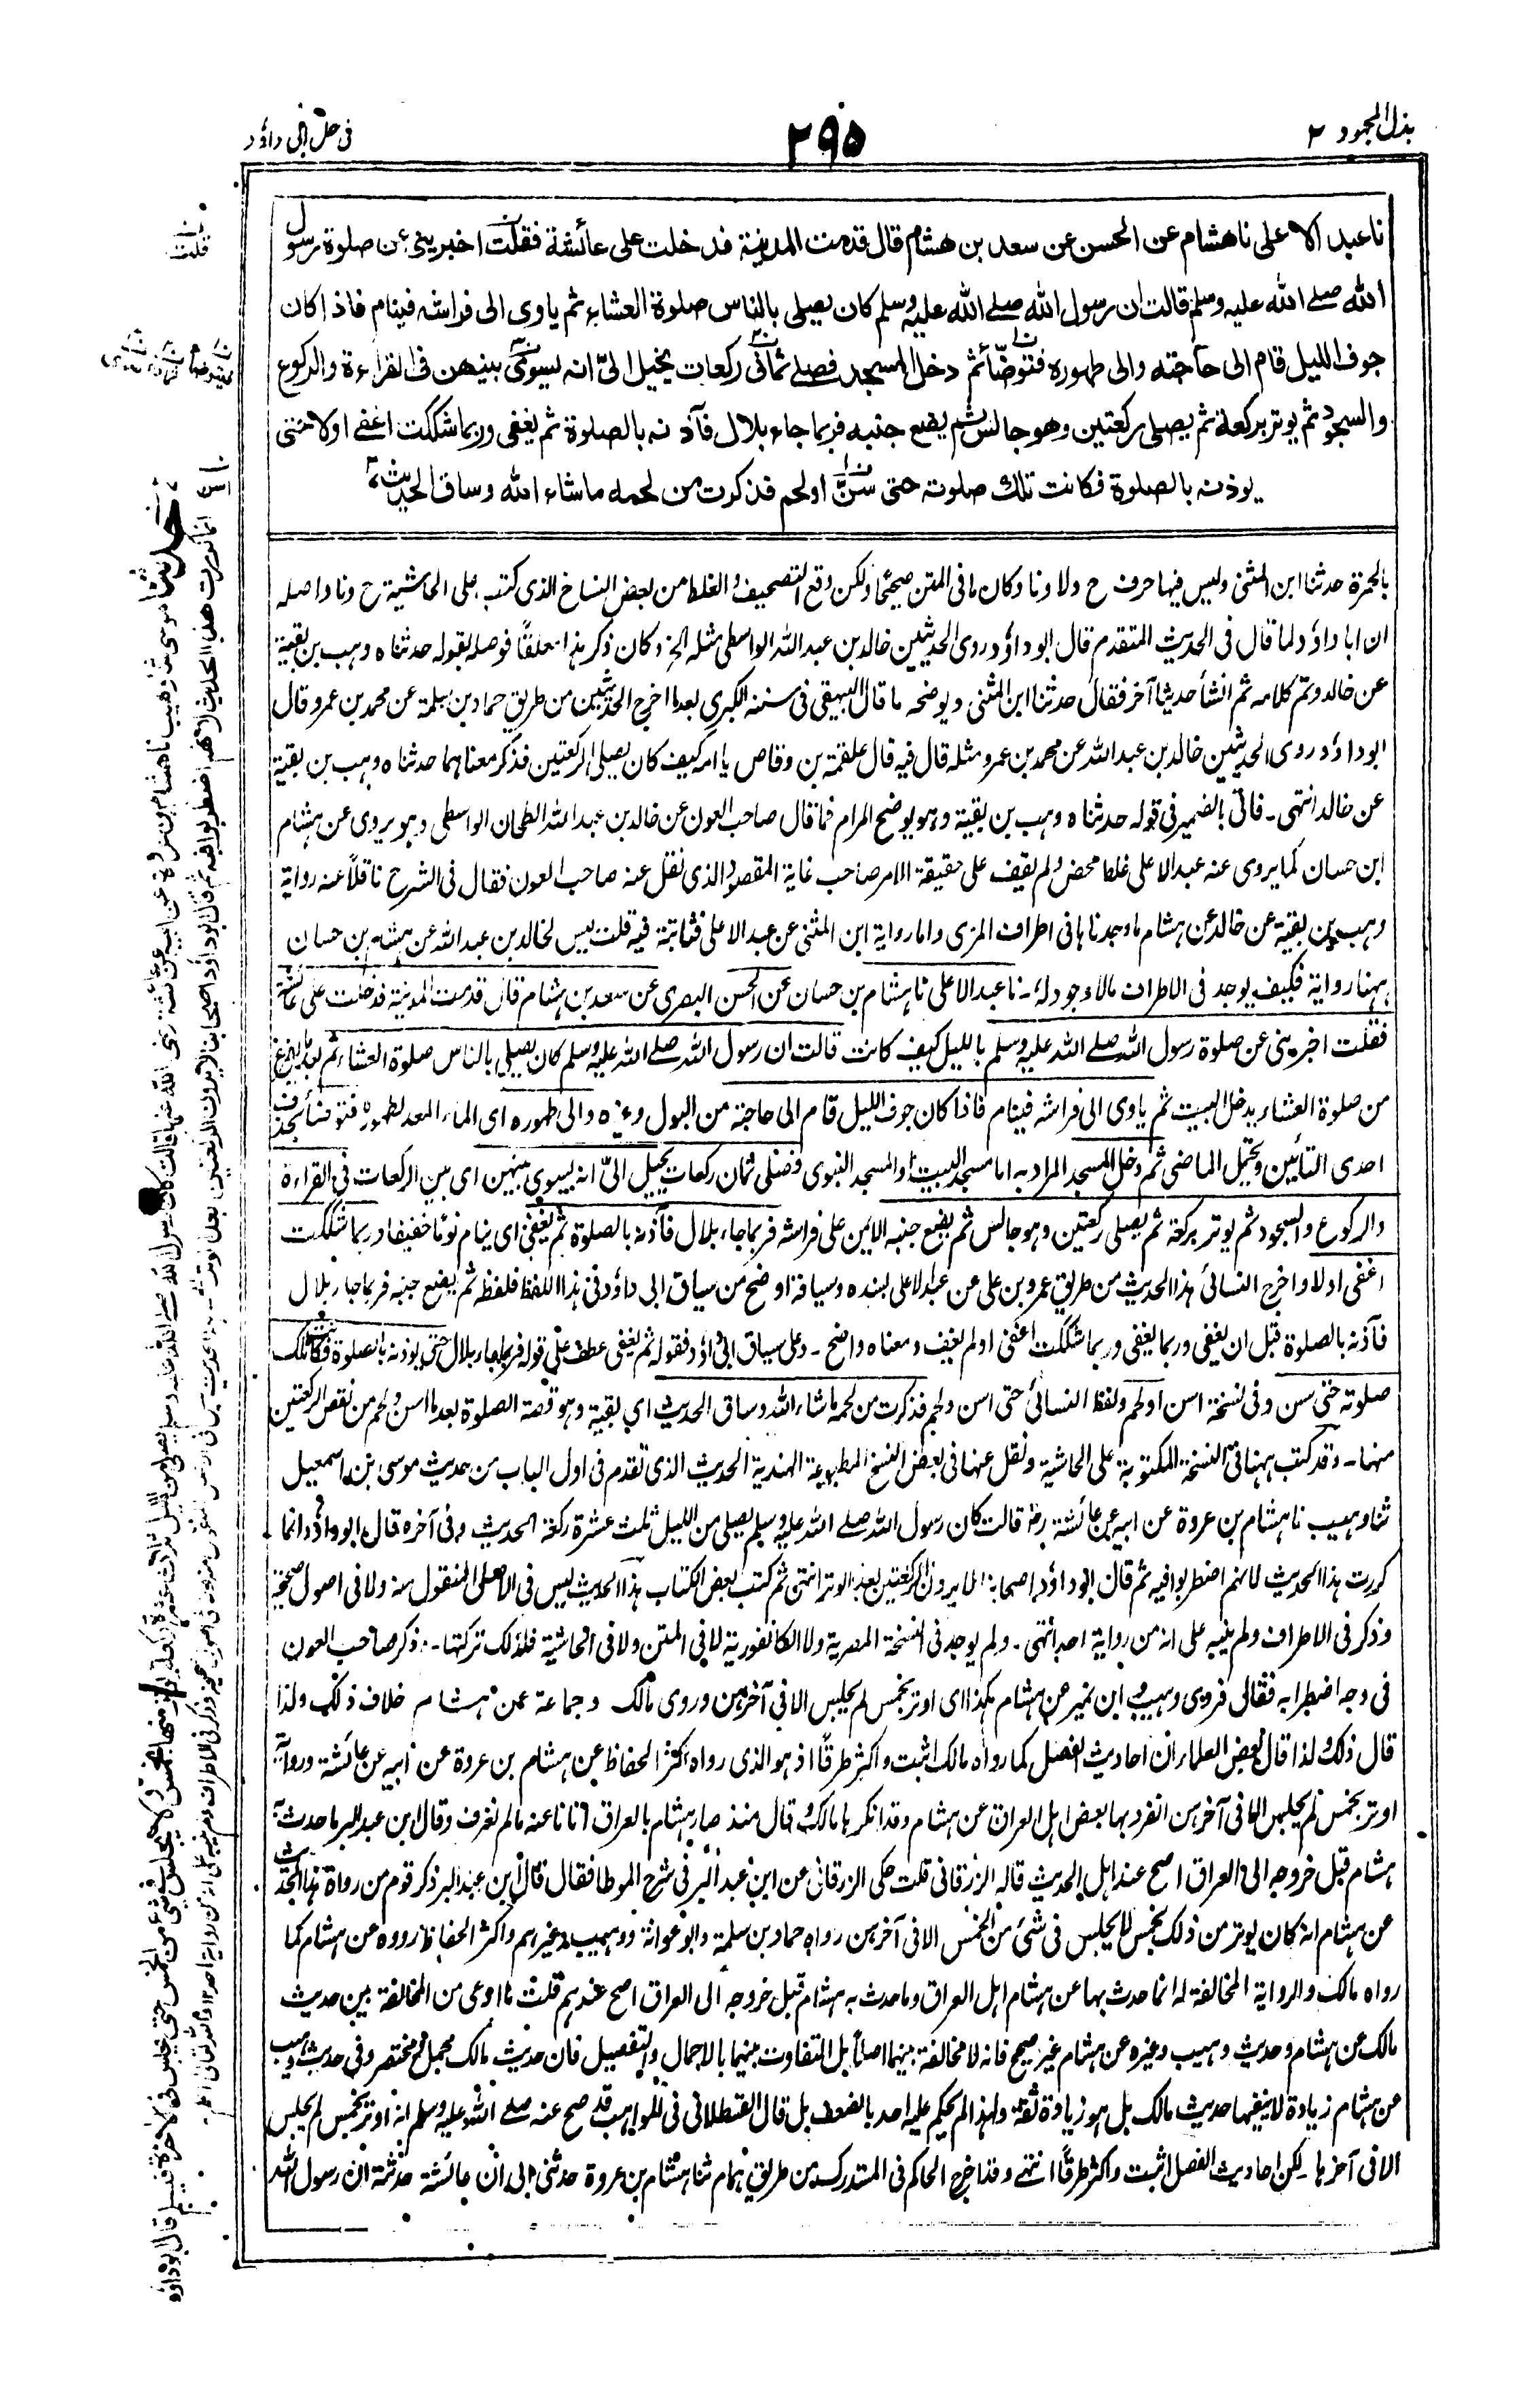 بذل المجهود ٢
٢٩٥
فى حل ابى داؤد
نا عبد الاعلى نا هشام عن الحسن عن سعد بن هشام قال قدمت المدينة فدخلت على عائشة فقلت اخبرينى عن صلوة رسول
الله صلے الله عليه وسلم قالت ان رسول الله صلے الله عليه وسلم كان يصلى بالناس صلوة العشاء ثم ياوى الى فراشه فينام فاذا كان
جوف الليل قام الى حاجته والى طهوره فتوضأ ثم دخل المسجد فصلے ثمانى ركعات يخيل الىّ انه يسوى بينهن فى القراءة والركوع
والسجود ثم يوتر بركعة ثم يصلى ركعتين وهو جالس ثم يضع جنبه فربما جاء بلال فآذنه بالصلوة ثم يغفى وربما شككت اغفے اولا حتى
يوذنه بالصلوة فكانت تلك صلوته حتى سنّ اولحم فذكرت من لحمه ماشاء الله وساق الحديث
بالحمرة حدثنا ابن المثنى وليس فيها حرف ح ولا ونا وكان ما فى المتن صحيحًا ولكن وقع التصحيف والغلط من بعض النساخ الذى كتب على الحاشية ح ونا واصله
ان ابا داؤد لما قال فى الحديث المتقدم قال ابو داؤد روى الحديثين خالد بن عبد الله الواسطى مثله الخ وكان ذكر هذا معلقًا فوصله بقوله حدثناه وهب بن بقية
عن خالد وتم كلامه ثم انشأ حديثا آخر فقال حدثنا ابن المثنى ويوضحه ما قال البيهقى فى سننه الكبرى بعد ما اخرج الحديثين من طريق حماد بن سلمة عن محمد بن عمرو قال
ابو داؤد روى الحديثين خالد بن عبد الله عن محمد بن عمرو مثله قال فيه قال علقمة بن وقاص يا امه كيف كان يصلى الركعتين فذكر معناهما حدثناه وهب بن بقية
عن خالد انتهى ـ فاتى بالضمير فى قوله حدثناه وهب بن بقية وهو يوضح المرام فما قال صاحب العون عن خالد بن عبد الله الطحان الواسطى وهو يروى عن هشام
ابن حسان كما يروى عنه عبد الاعلى غلط محض ولم يقف على حقيقة الامر صاحب غاية المقصود الذى نقل عنه صاحب العون فقال فى الشرح ناقلًا عنه رواية
وهب بن بقية عن خالد عن هشام ما وجدناها فى اطراف المزى واما رواية ابن المثنى عن عبد الاعلى فثابتة فيه قلت ليس لخالد بن عبد الله عن هشام بن حسان
ههنا رواية فكيف يوجد فى الاطراف مالا وجود له ـ نا عبد الاعلى نا هشام بن حسان عن الحسن البصرى عن سعد بن هشام قال قدمت المدينة فدخلت على عائشة
فقلت اخبرينى عن صلوة رسول الله صلے الله عليه وسلم بالليل كيف كانت قالت ان رسول الله صلے الله عليه وسلم كان يصلى بالناس صلوة العشاء ثم بعد ما يفرغ
من صلوة العشاء يدخل البيت ثم ياوى الى فراشه فينام فاذا كان جوف الليل قام الى حاجته من البول وغيره والى طهوره اى الماء المعد لطهوره فتوضأ بحذف
احدى التائين ويحتمل الماضى ثم دخل المسجد المراد به اما مسجد البيت او المسجد النبوى فصلى ثمان ركعات يخيل الىّ انه يسوى بينهن اى بين الركعات فى القراءة
والركوع والسجود ثم يوتر بركعة ثم يصلى ركعتين وهو جالس ثم يضع جنبه الايمن على فراشه فربما جاء بلال فآذنه بالصلوة ثم يغفى اى ينام نومًا خفيفا وربما شككت
اغفى اولا واخرج النسائى هذا الحديث من طريق عمرو بن على عن عبد الاعلى بسنده وسياقه اوضح من سياق ابى داؤد فى هذا اللفظ فلفظه ثم يضع جنبه فربما جاء بلال
فآذنه بالصلوة قبل ان يغفى وربما يغفى وربما شككت اغفى اولم يغف ومعناه واضح ـ وعلى سياق ابى داؤد فقوله ثم يغفى عطف على قوله فربما جاء بلال حتى يوذنه بالصلوة فكانت تلك
صلوته حتى سن وفى نسخة اسن اولحم ولفظ النسائى حتى اسن ولحم فذكرت من لحمه ماشاء الله وساق الحديث اى بقية وهو قصة الصلوة بعد ما اسن ولحم من نقص الركعتين
منها ـ وقد كتب ههنا فى النسخة المكتوبة على الحاشية ونقل عنها فى بعض النسخ المطبوعة الهندية الحديث الذى تقدم فى اول الباب من حديث موسى بن اسمعيل
ثنا وهيب نا هشام بن عروة عن ابيه عن عائشة رض قالت كان رسول الله صلے الله عليه وسلم يصلى من الليل ثلث عشرة ركعة الحديث وفى آخره قال ابو داؤد انما
كررت هذا الحديث لانهم اضطربوا فيه ثم قال ابو داؤد اصحابنا لا يرون الركعتين بعد الوتر انتهى ثم كتب بعض الكتاب هذا الحديث ليس فى الاصل المنقول منه ولا فى اصول صحيحة
وذكر فى الاطراف ولم ينبه على انه من رواية احد انتهى ـ ولم يوجد فى النسخة المصرية ولا الكانفورية لا فى المتن ولا فى الحاشية فلذلك تركتها ـ وذكر صاحب العون
فى وجه اضطرابه فقال فروى وهيب وابن نمير عن هشام هكذا اى اوتر بخمس لم يجلس الا فى آخرهن وروى مالك وجماعة عن هشام خلاف ذلك ولذا
قال ذلك ولذا قال بعض العلماء ان احاديث الفصل كما رواه مالك اثبت واكثر طرقًا اذ هو الذى رواه اكثر الحفاظ عن هشام بن عروة عن ابيه عن عائشة ورواية
اوتر بخمس لم يجلس الا فى آخرهن انفرد بها بعض اهل العراق عن هشام وقد انكرها مالك وقال منذ صار هشام بالعراق اتانا عنه مالم نعرف وقال ابن عبد البر ما حدث به
هشام قبل خروجه الى العراق اصح عند اهل الحديث قاله الزرقانى قلت حكى الزرقانى عن ابن عبد البر فى شرح الموطا فقال قال ابن عبد البر ذكر قوم من رواة هذا الحديث
عن هشام انه كان يوتر من ذلك بخمس لا يجلس فى شئ من الخمس الا فى آخرهن رواه حماد بن سلمة وابو عوانة ووهيب وغيرهم واكثر الحفاظ رووه عن هشام كما
رواه مالك والرواية المخالفة له انما حدث بها عن هشام اهل العراق وما حدث به هشام قبل خروجه الى العراق اصح عندهم قلت ما ادعى من المخالفة بين حديث
مالك عن هشام وحديث وهيب وغيره عن هشام غير صحيح فانه لا مخالفة بينهما اصلًا بل التفاوت بينهما بالاجمال والتفصيل فان حديث مالك مجمل مختصر وفى حديث وهيب
عن هشام زيادة لا ينفيها حديث مالك بل هو زيادة ثقة ولهذا لم يحكم عليه احد بالضعف بل قال القسطلانى فى المواهب قد صح عنه صلے الله عليه وسلم انه اوتر بخمس لم يجلس
الا فى آخرها ـ لكن احاديث الفصل اثبت واكثر طرقًا انتهے وقد اخرج الحاكم فى المستدرك من طريق همام ثنا هشام بن عروة حدثنى ابى ان عائشة حدثته ان رسول الله
قلت
حدثنا موسى نا وهيب نا هشام بن عروة عن ابيه عن عائشة رضى الله عنها قالت كان رسول الله صلے الله عليه وسلم يصلى من الليل ثلاث عشرة ركعة يوتر منها بخمس ولا يجلس فى شئ من الخمس حتى يجلس فى الآخرة فيسلم قال ابو داؤد
انما كررت هذا الحديث لانهم اضطربوا فيه ثم قال ابو داؤد اصحابنا لا يرون الركعتين بعد الوتر